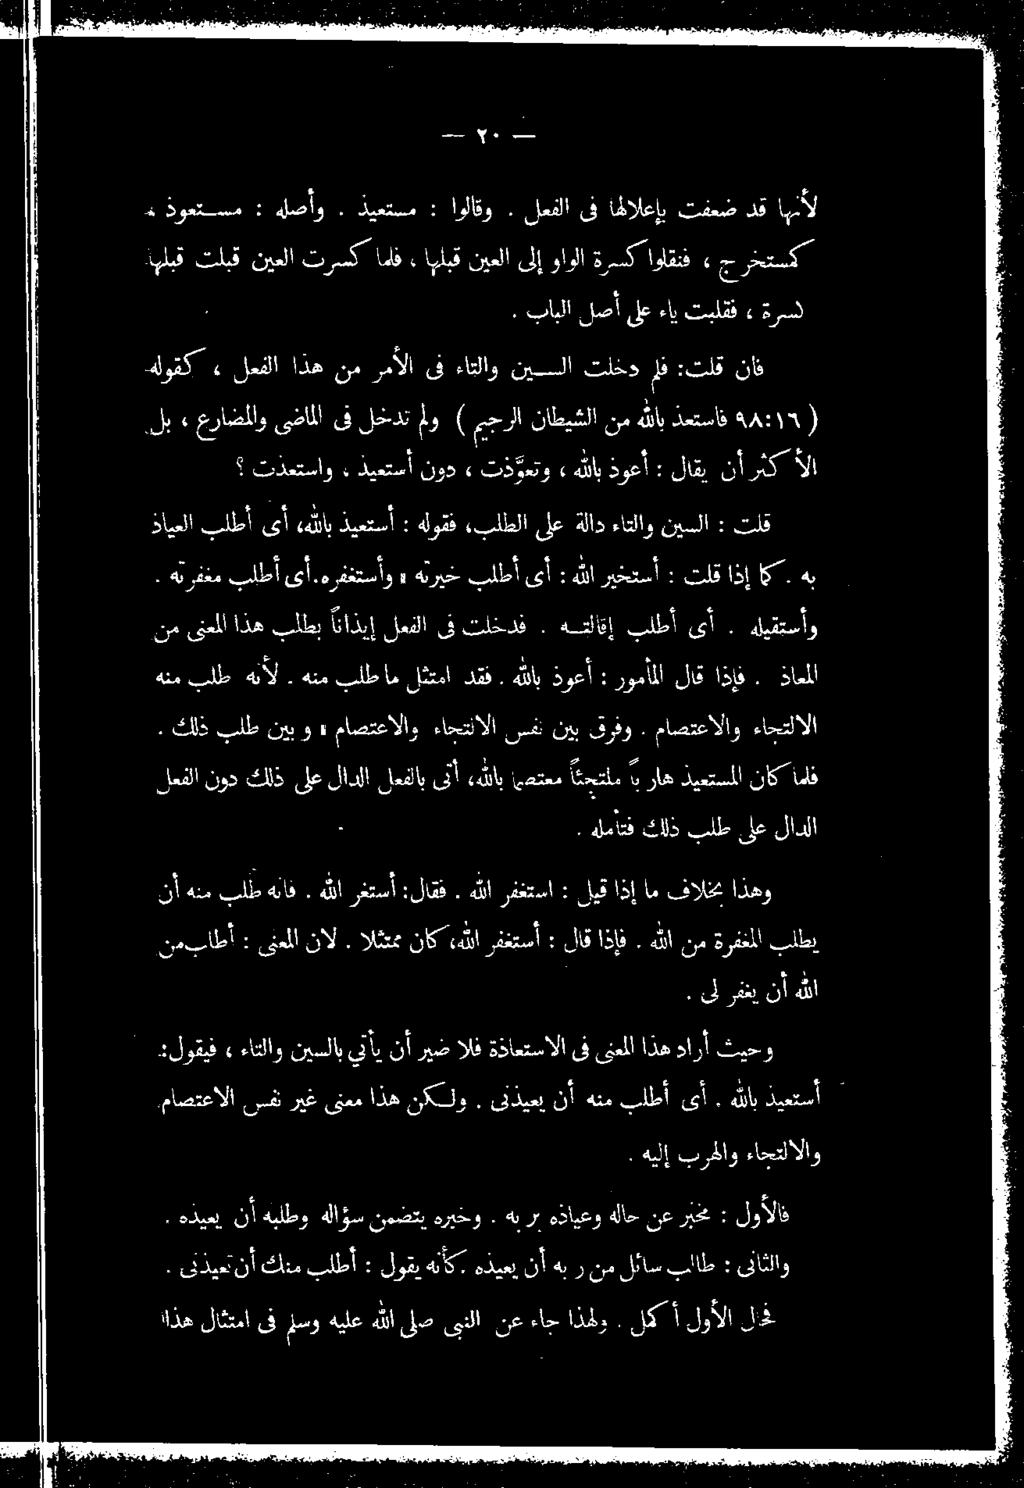 — ٢٠ —
لأنها قد ضعفت بإعلالها فى الفعل . وقالوا : مستعيذ . وأصله : مستعوذ ،
كمستخرج ، فنقلوا كسرة الواو إلى العين قبلها ، فلما كسرت العين قبلت قبلها
كسرة ، فقلبت ياء على أصل الباب .
فان قلت : فلم دخلت السين والتاء فى الأمر من هذا الفعل ، كقوله
( ٩٨:١٦ فاستعذ بالله من الشيطان الرجيم ) ولم تدخل فى الماضى والمضارع ، بل
الأكثر أن يقال : أعوذ بالله ، وتعوَّذت ، دون أستعيذ ، واستعذت ؟
قلت : السين والتاء دالة على الطلب ، فقوله : أستعيذ بالله ، أى أطلب العياذ
به . كما إذا قلت : أستخير الله : أى أطلب خيرته ، وأستغفره . أى أطلب مغفرته .
وأستقيله . أى أطلب إقالته . فدخلت فى الفعل إيذاناً بطلب هذا المعنى من
المعاذ . فإذا قال المأمور : أعوذ بالله . فقد امتثل ما طلب منه . لأنه طلب منه
الالتجاء والاعتصام . وفرق بين نفس الالتجاء والاعتصام ، وبين طلب ذلك .
فلما كان المستعيذ هارباً ملتجئاً معتصما بالله ، أتى بالفعل الدال على ذلك دون الفعل
الدال على طلب ذلك فتأمله .
وهذا بخلاف ما إذا قيل : استغفر الله . فقال : أستغر الله . فانه طلب منه أن
يطلب المغفرة من الله . فإذا قال : أستغفر الله ، كان ممتثلا . لان المعنى : أطاب من
الله أن يغفر لى .
وحيث أراد هذا المعنى فى الاستعاذة فلا ضير أن يأتى بالسين والتاء ، فيقول :
أستعيذ بالله . أى أطلب منه أن يعيذنى . ولكن هذا معنى غير نفس الاعتصام
والالتجاء والهرب إليه .
فالأول : مخبر عن حاله وعياذه بر به . وخبره يتضمن سؤاله وطلبه أن يعيذه .
والثانى : طالب سائل من ر به أن يعيذه . كأنه يقول : أطلب منك أن تعيذنى .
فحال الأول أكمل . ولهذا جاء عن النبى صلى الله عليه وسلم فى امتثال هذا